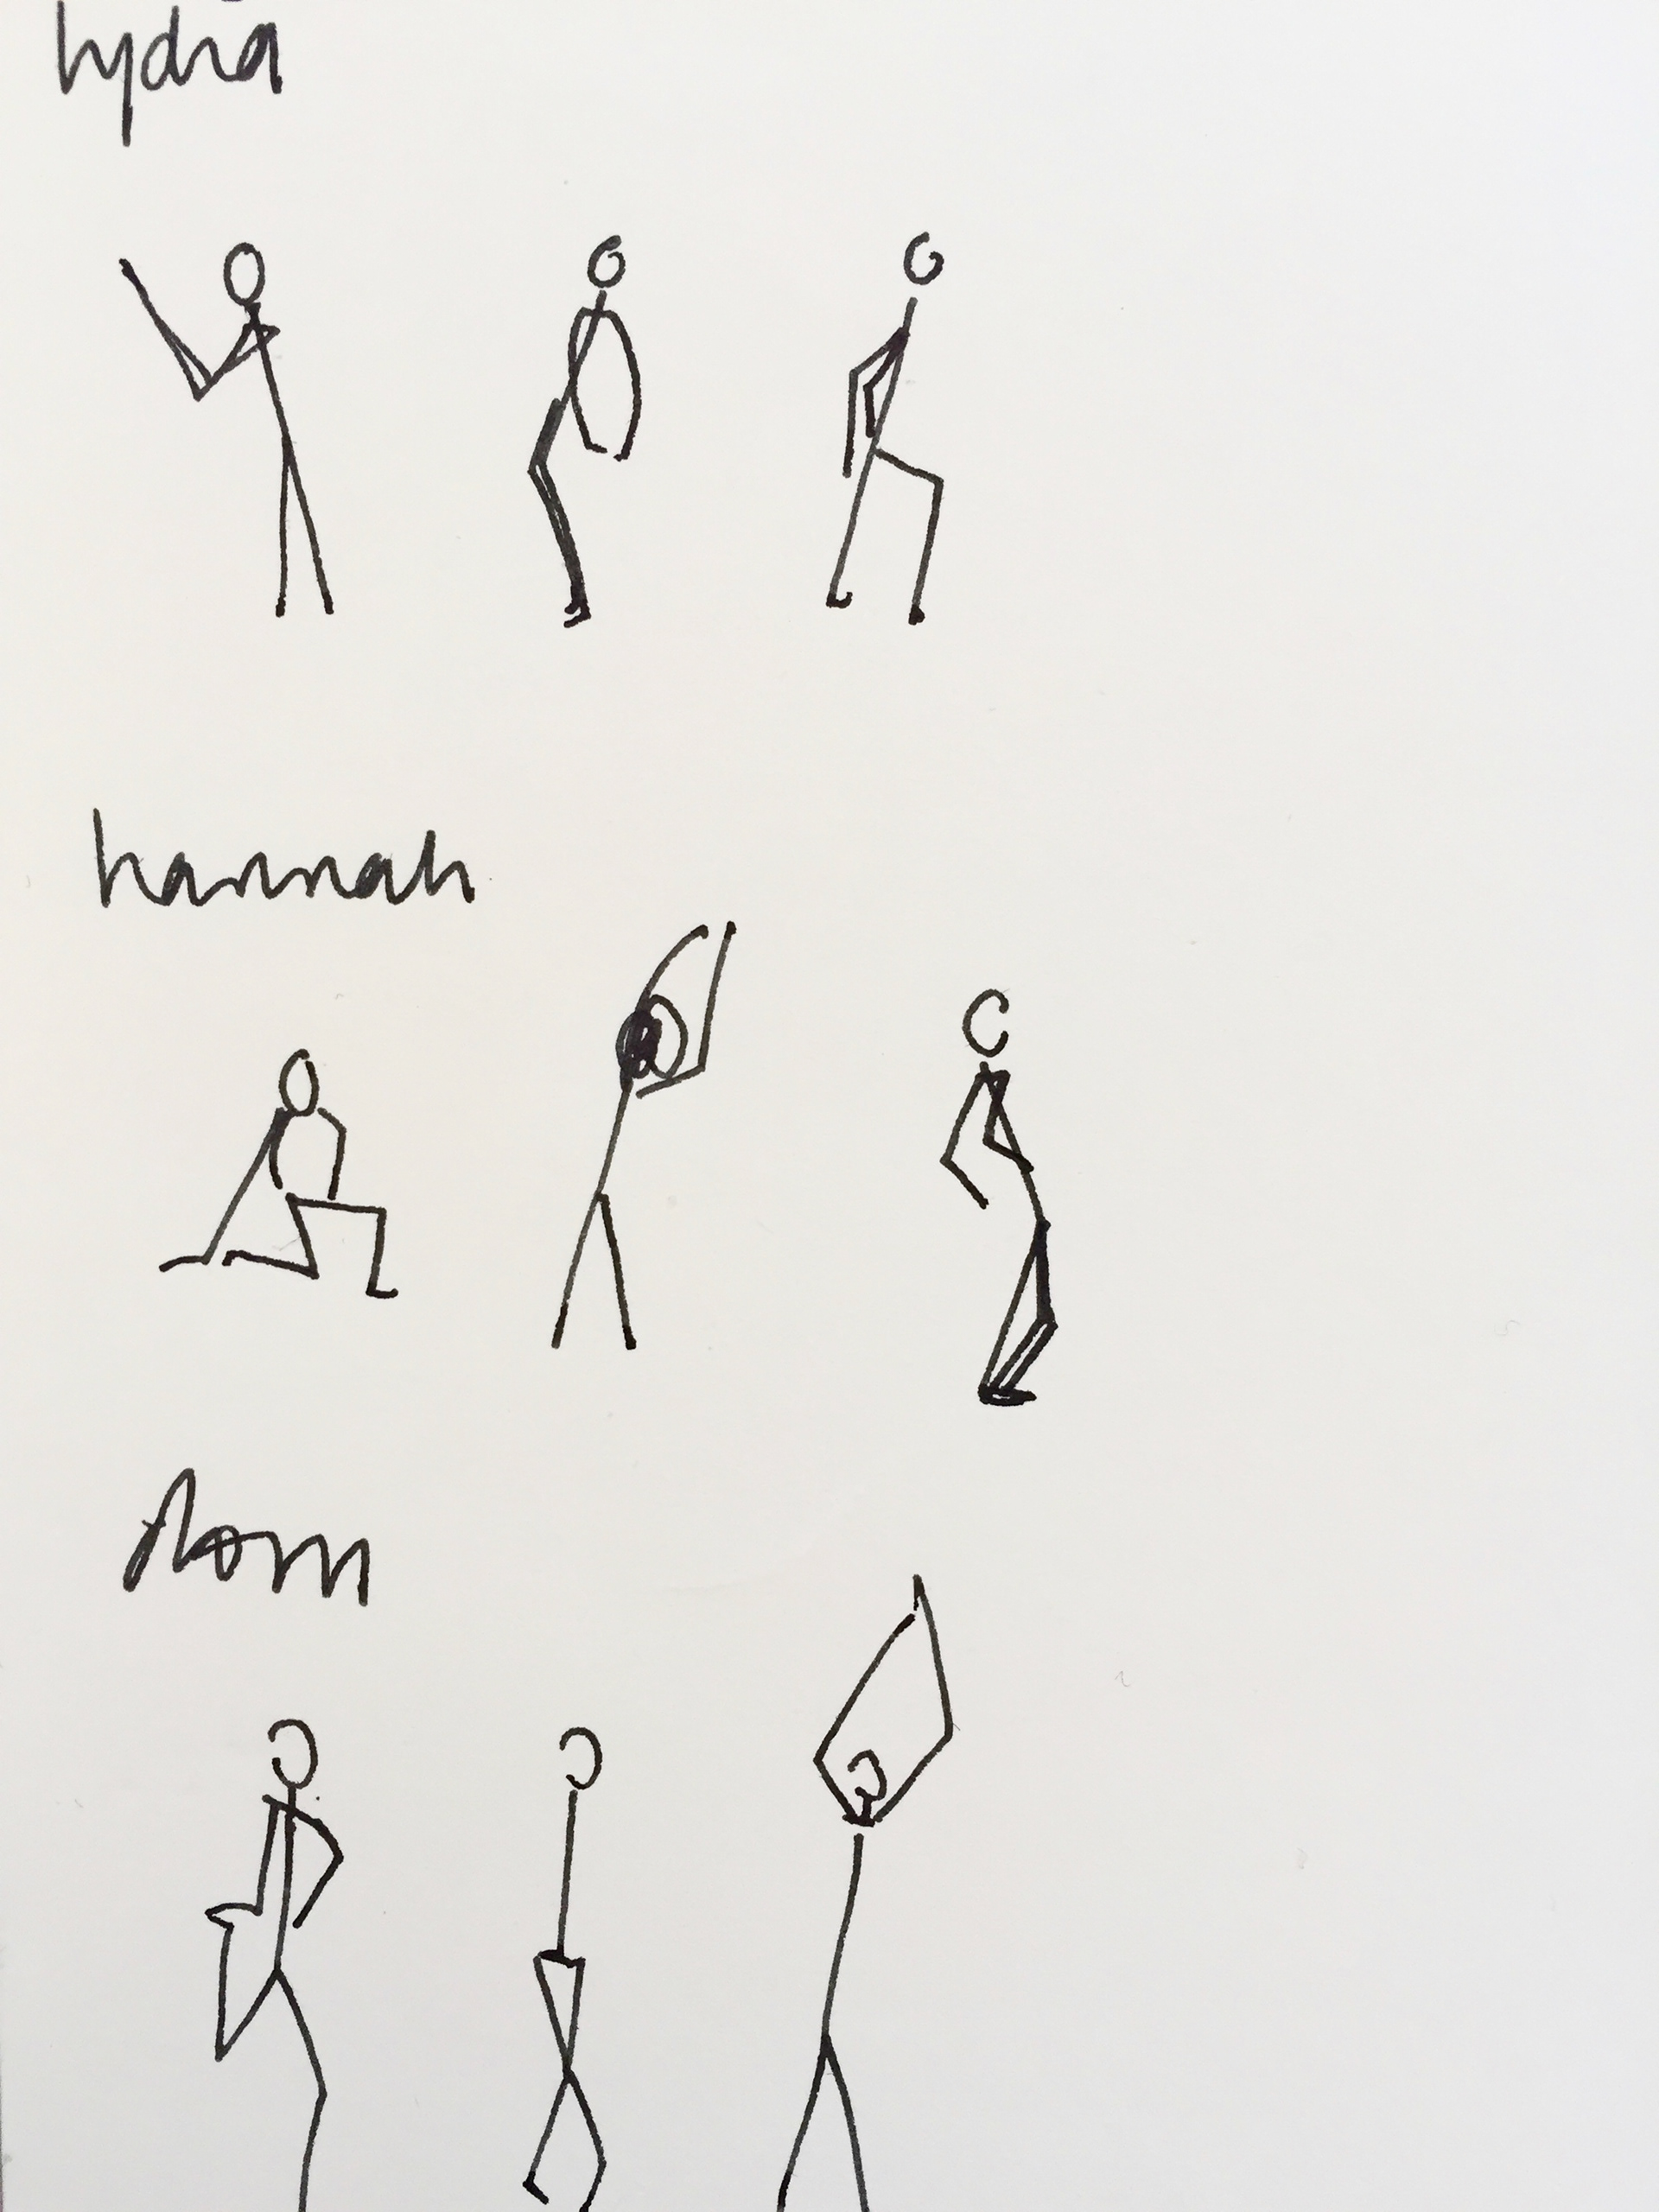 lydia
hannah
dom